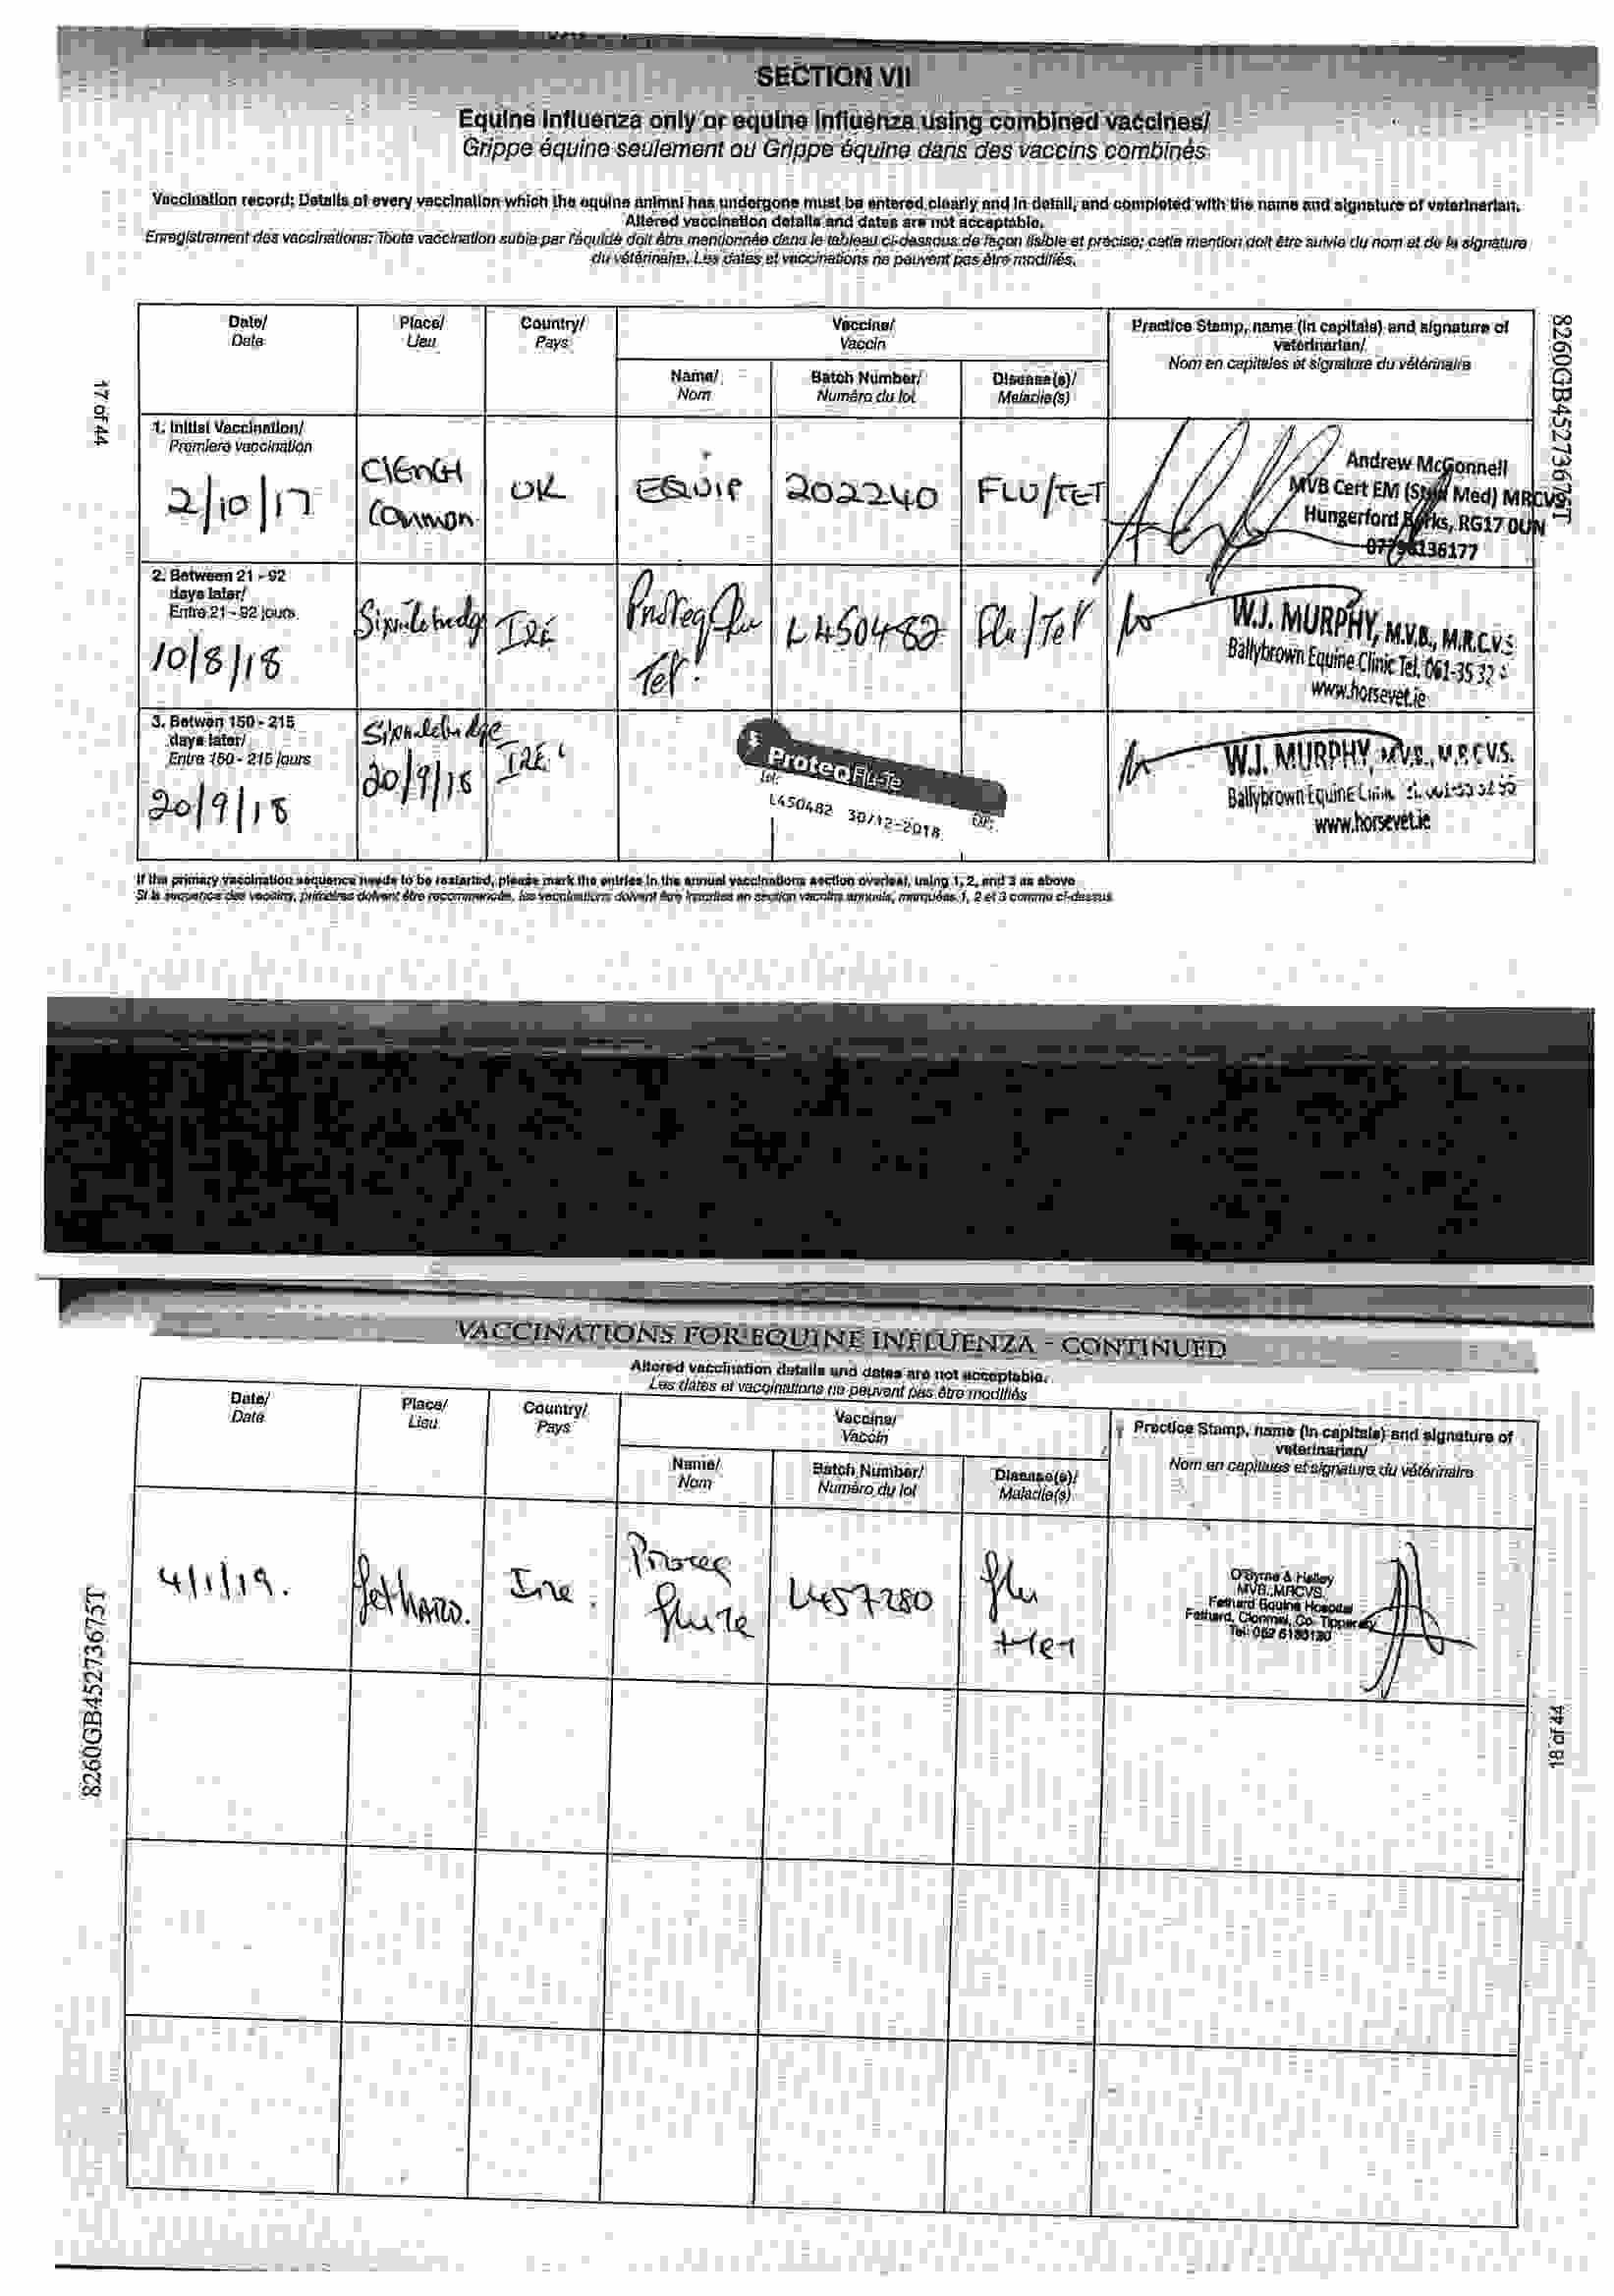 SECTION VII
Equine Influenza only or equine influenza using combined vaccines/
Grippe équine seulement ou Grippe équine dans des vaccins combinés
Vaccination record: Details of every vaccination which the equine animal has undergone must be entered clearly and in detail, and completed with the name and signature of veterinarian.
Altered vaccination details and dates are not acceptable.
Enregistrement des vaccinations: Toute vaccination subie par l'équidé doit être mentionnée dans le tableau ci-dessous de façon lisible et précise; cette mention doit être suivie du nom et de la signature
du vétérinaire. Les dates et vaccinations ne peuvent pas être modifiés.
17 of 44
8260GB45273675T
Date/
Date
Place/
Lieu
Country/
Pays
Vaccine/
Vaccin
Practice Stamp, name (in capitals) and signature of
veterinarian/
Nom en capitales et signature du vétérinaire
Name/
Nom
Batch Number/
Numéro du lot
Disease(s)/
Maladie(s)
1. Initial Vaccination/
Premiere vaccination
2/10/17
ClENCH
Common
UK
EQUIP
202240
FLU/TET
Andrew McGonnell
MVB Cert EM (Stud Med) MRCVS
Hungerford Berks, RG17 0UN
07798136177
2. Between 21 - 92
days later/
Entre 21 - 92 jours
10/8/18
Sixmilebridge
IRE
ProteqFlu
Tet.
L450482
Flu/Tet
W.J. MURPHY, M.V.B., M.R.C.V.S
Ballybrown Equine Clinic Tel. 061-35 32
www.horsevet.ie
3. Betwen 150 - 215
days later/
Entre 150 - 215 jours
20/9/18
Sixmilebridge
20/9/18
IRE
ProteqFlu-Te
Lot:
L450482 30/12-2018
EXP:
W.J. MURPHY, M.V.B., M.R.C.V.S.
Ballybrown Equine Clinic
www.horsevet.ie
If the primary vaccination sequence needs to be restarted, please mark the entries in the annual vaccinations section overleaf, using 1, 2, and 3 as above
Si la sequence des vaccins, primaires doivent être recommencée, les vaccinations doivent être inscrites en section vaccins annuels, marquées 1, 2 et 3 comme ci-dessus
VACCINATIONS FOR EQUINE INFLUENZA - CONTINUED
Altered vaccination details and dates are not acceptable.
Les dates et vaccinations ne peuvent pas être modifiés
Date/
Date
Place/
Lieu
Country/
Pays
Vaccine/
Vaccin
Practice Stamp, name (in capitals) and signature of
veterinarian/
Nom en capitales et signature du vétérinaire
Name/
Nom
Batch Number/
Numéro du lot
Disease(s)/
Maladie(s)
4/1/19.
FetHARD.
Ire.
Proteq
flu te
L457280
flu
+tet
O'Byrne & Halley
MVB, MRCVS,
Fethard Equine Hospital
Fethard, Clonmel, Co. Tipperary
8260GB45273675T
18 of 44